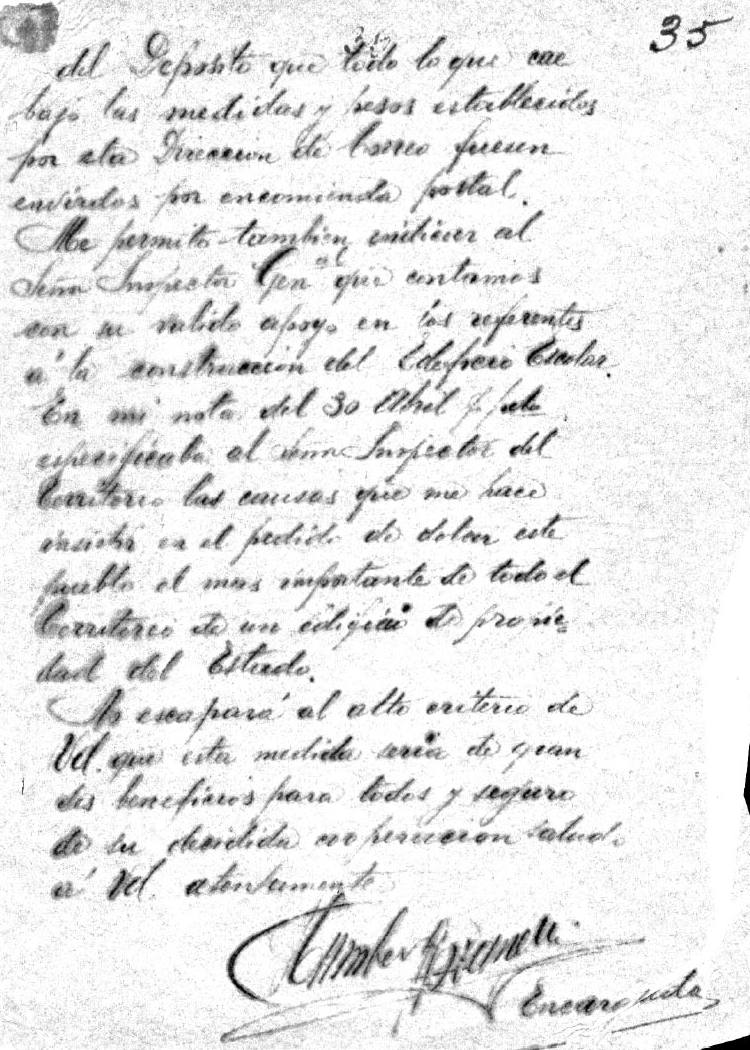 35
del Deposito que todo lo que cae
bajo las medidas y pesos establecidos
por esta Direccion de Correo fuesen
enviados por encomienda postal.
Me permito tambien indicar al
Señor Inspector Genal que contamos
con su valido apoyo en los referentes
a' la construccion del Edificio Escolar.
En mi nota del 30 Abril p. pdo
especificaba al Señor Inspector del
Territorio las causas que me hace
insistir en el pedido de dotar este
pueblo el mas importante de todo el
Territorio de un edificio de propie
dad del Estado.
No escapará al alto criterio de
Vd. que esta medida seria de gran
des beneficios para todos y seguro
de su decidida cooperacion saluda
a' Vd. atentamente